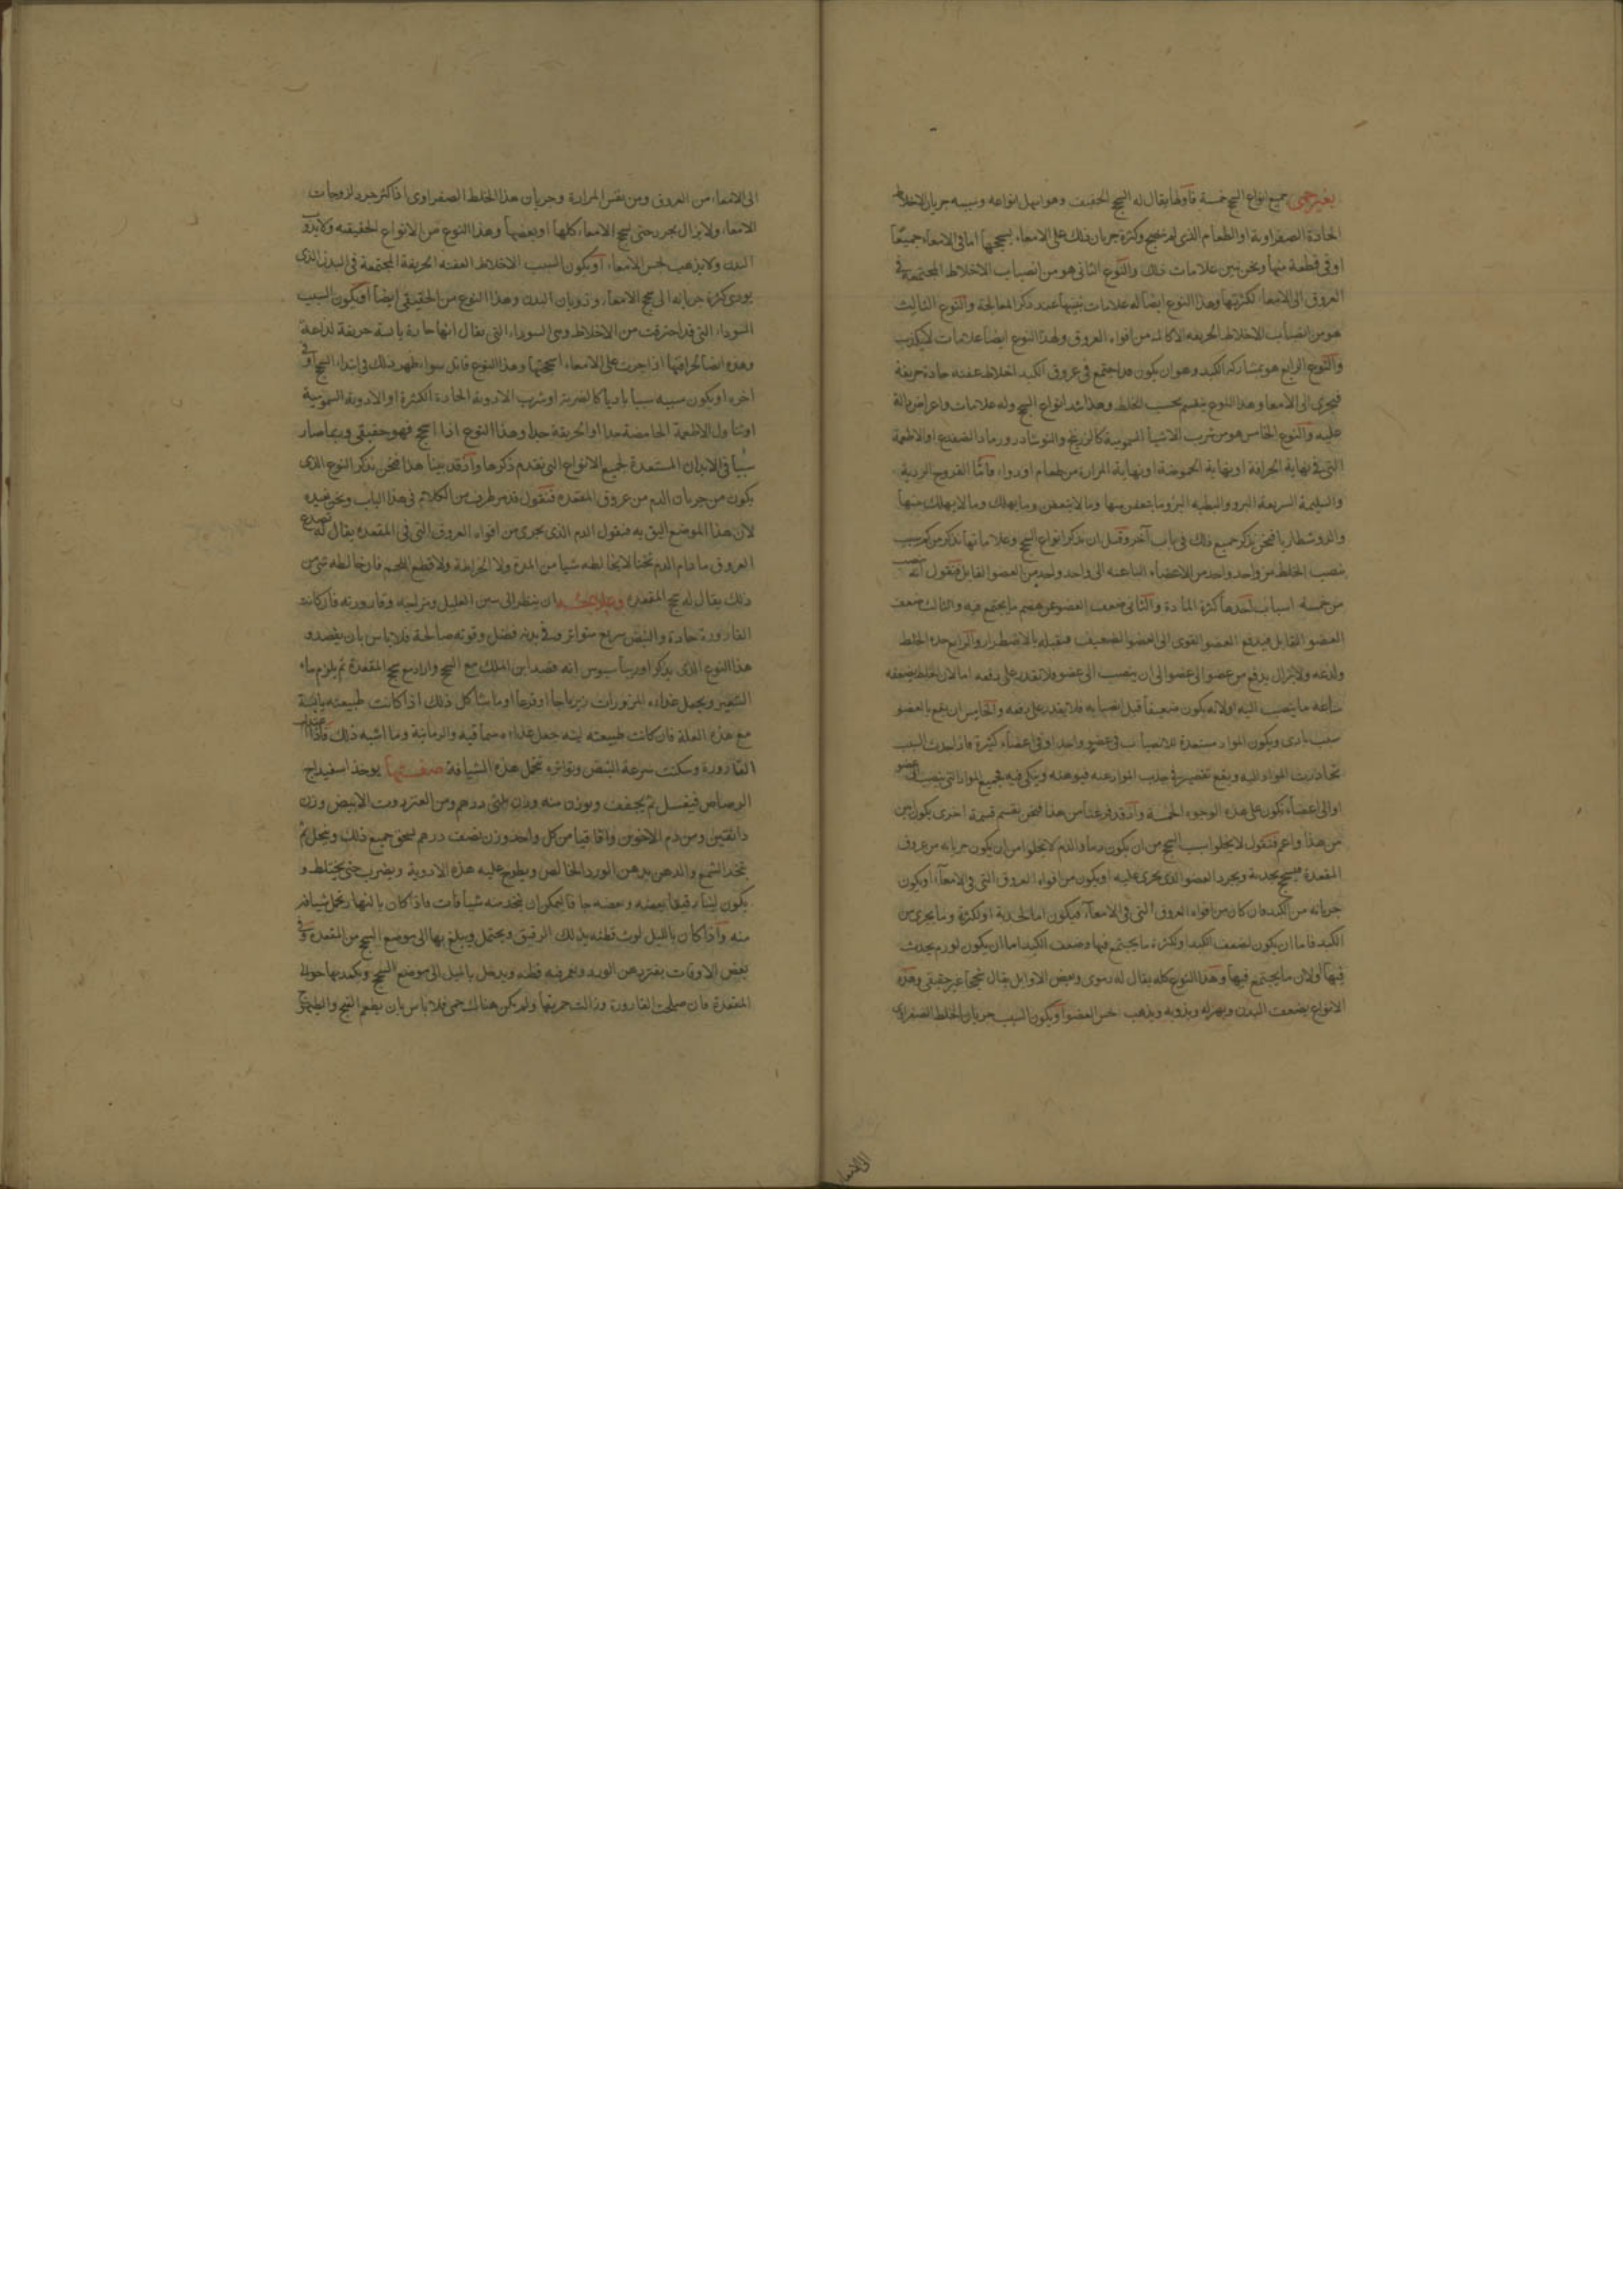 بغير حمى جميع انواع السحج خمسة فاولها يقال له السحج الخفيف وهو اسهل انواعه وسببه جريان الاخلاط
الحادة الصفراوية او الطعام الذى لم ينضج وكثرة جريان ذلك على الامعاء يسحجها اما فى الامعاء جميعًا
او فى قطعة منها ونحن نبين علامات ذلك والنوع الثانى هو من انصباب الاخلاط المجتمعة فى
العروق الى الامعاء لكثرتها وهذا النوع ايضا له علامات نبينها عند ذكر المعالجة والنوع الثالث
هو من انصباب الاخلاط الحريفه الاكاله من افواه العروق ولهذا النوع ايضا علامات لا يكذب
والنوع الرابع هو بمشاركة الكبد وهو ان يكون قد اجتمع فى عروق الكبد اخلاط عفنه حادة حريفة
فيجرى الى الامعا وهذا النوع ينقسم بحسب الخلط وهذا اشد انواع السحج وله علامات واعراض دالة
عليه والنوع الخامس هو من شرب الاشيا السمومية كالزرنيخ والنوشادر ورماد الضفدع او الاطعمة
التى فى نهاية الحرافة او نهاية الحموضة او نهاية المرارة من طعام او دواء فاما القروح الردية
والسليمة السريعة البرو والبطيه البرو وما يتعفن منها وما لا يتعفن وما يهلك وما لا يهلك منها
والذوسنطاريا فنحن نذكر جميع ذلك فى باب آخر وقبل ان نذكر انواع السحج وعلاماتها نذكر من كم سبب
ينصب الخلط من واحد واحد من الاعضاء الباعثه الى واحد واحد من العضو القابل فنقول انه ينصب
من خمسة اسباب احدها كثرة المادة والثانى ضعف العضو عن هضم ما يجتمع فيه والثالث ضعف
العضو القابل فيدفع العضو القوى الى العضو الضعيف فيقبله بالاضطرار والرابع حدة الخلط
ولذعه ولا يزال يدفع من عضو الى عضو الى ان ينصب الى عضو ولا يقدر على دفعه اما لان الخلط يضعفه
ساعة ما ينصب اليه او لانه يكون ضعيفًا قبل انصبابه فلا يقدر على دفعه والخامس ان يقع بالعضو
سبب بادى ويكون المواد مستعدة للانصباب فى عضو واحد او فى اعضاء كثيرة فاذا حدث السبب
تحادرت المواد اليه ويقع تقصير فى جذب المواد عنه فيوهنه وينكى فيه فجميع المواد التى ينصب الى عضو
او الى اعضاء يكون على هذه الوجوه الخمسة واذ قد فرغنا من هذا فنحن نقسم قسمة اخرى يكون ابين
من هذا واعم فنقول لا يخلو سبب السحج من ان يكون دما والدم لا يخلوا من ان يكون جريانه من عروق
المقعدة فيسحج بحدته ويجرد العضو الذى يجرى عليه او يكون من افواه العروق التى فى الامعاء او يكون
جريانه من الكبد فان كان من افواه العروق التى فى الامعاء فيكون اما لحدته او لكثرة وما يجرى من
الكبد فاما ان يكون لضعف الكبد او لكثرة ما يجتمع فيها وضعف الكبد اما ان يكون لورم يحدث
فيها او لان ما يجتمع فيها وهذا النوع كله يقال له دموى وبعض الاوايل يقال سحجا غير حقيقى وهذه
الانواع يضعف البدن ويهزله ويذوبه ويذهب لحس العضو او يكون السبب جريان الخلط الصفراوى
الى الامعا
الى الامعاء من العروق ومن نفس المرارة وجريان هذا الخلط الصفراوى اذا كثر جرد لزوجات
الامعاء ولا يزال يجرد حتى يسحج الامعاء كلها او بعضها وهذا النوع من الانواع الحقيقيه ولا يذوب
البدن ولا يذهب لحس الامعاء او يكون السبب الاخلاط العفنه الحريفة المجتمعة فى البدن الذى
يودى كثرة جريانه الى سحج الامعاء وذوبان البدن وهذا النوع من الحقيقى ايضا او يكون السبب
السوداء التى قد احترقت من الاخلاط وهى السوداء التى يقال انها حادة يابسة حريفة لذاعة
وهذه ايضا لحرافتها اذا جرت على الامعاء اسحجتها وهذا النوع قاتل سواء ظهر ذلك فى ابتداء السحج او فى
اخره او يكون سببه سببا باديا كالضربة او شرب الادوية الحادة الكثيرة او الادوية السمومية
او تناول الاطعمة الحامضة جدا او الحريفة جدا وهذا النوع اذا اسحج فهو حقيقى وربما صار
سببا فى الابدان المستعدة لجميع الانواع التى تقدم ذكرها واذ قد بينا هذا فنحن نذكر النوع الذى
يكون من جريان الدم من عروق المقعدة فنقول قد مر طرف من الكلام فى هذا الباب ونحن نعيده
لان هذا الموضع اليق به فنقول الدم الذى يجرى من افواه العروق التى فى المقعدة يقال له تصدع
العروق ما دام الدم نحتا لا يخالطه شيا من المدة ولا الخراطة ولا قطع اللحم فان خالطه شى من
ذلك يقال له سحج المقعدة وعلاجه ان ينظر الى سن العليل ومزاجه وقارورته فان كانت
القارورة حادة والنبض سريع متواتر وفى بدنه فضل وقوته صالحة فلا باس بان يفصد و
هذا النوع الذى يذكر اوريباسيوس انه فصد ابن الملك مع السحج واراد مع سحج المقعدة ثم يلزم ماء
الشعير ويجعل غذاه المزورات زيرباجا او قرعا او ما شاكل ذلك اذا كانت طبيعته يابسة
مع هذه العلة فان كانت طبيعته لينه جعل غذاه سماقيه والرمانية وما اشبه ذلك فاذا
القارورة وسكنت سرعة النبض وتواتره تحمل هذه الشيافة صفتها يوخذ اسفيداج
الرصاص فيغسل ثم يجفف ويوزن منه وزن ثلثى درهم ومن العنزروت الابيض وزن
دانقين ومن دم الاخوين واقاقيا من كل واحد وزن نصف درهم يسحق جميع ذلك وينخل ثم
يتخذ الشمع والدهن بدهن الورد الخالص ويطرح عليه هذه الادوية ويضرب حتى يختلط و
يكون لينا رقيقا بعضه وبعضه جافا يمكن ان يتخذ منه شيافات فاذا كان بالنهار تحمل شيافه
منه واذا كان بالليل لوث قطنه بذلك الرقيق ويحتمل ويبلغ بها الى موضع السحج من المقعده وفى
بعض الاوقات يفتر دهن الورد ويغمر فيه قطنه ويدخل بالميل الى موضع السحج ويكمد بها حوالى
المقعدة فان صلحت القارورة وزالت حمرتها ولم يكن هناك حمى فلا باس بان يطعم القبج والطيهوج